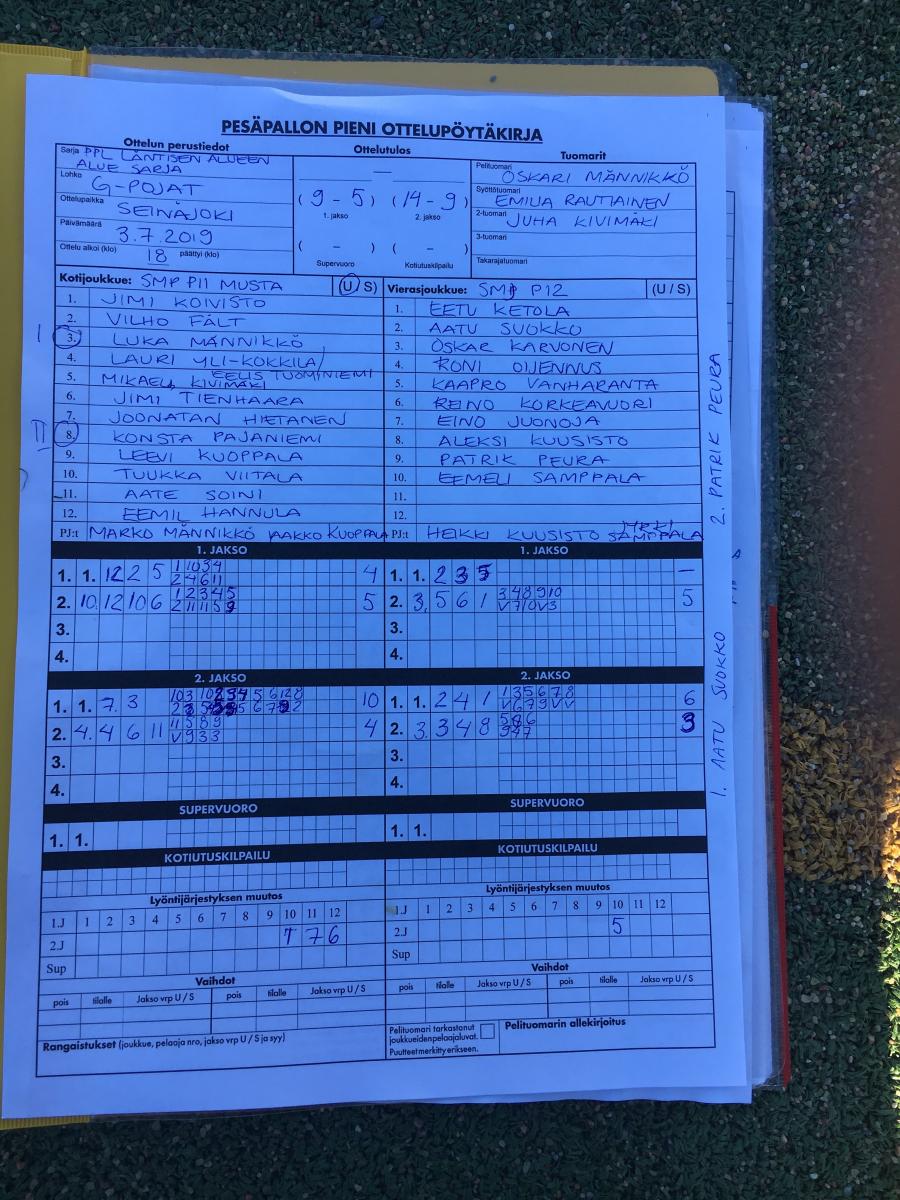 PESÄPALLON PIENI OTTELUPÖYTÄKIRJA
Ottelun perustiedot
Sarja PPL LÄNTISEN ALUEEN
ALUE SARJA
Lohko G-POJAT
Ottelupaikka SEINÄJOKI
Päivämäärä 3.7.2019
Ottelu alkoi (klo) 18 päättyi (klo)
Ottelutulos
—
( 9 - 5 ) ( 14 - 9 )
1. jakso 2. jakso
( - ) ( - )
Supervuoro Kotiutuskilpailu
Tuomarit
Pelituomari OSKARI MÄNNIKKÖ
Syöttötuomari EMILIA RAUTIAINEN
2-tuomari JUHA KIVIMÄKI
3-tuomari
Takarajatuomari
Kotijoukkue: SMP P11 MUSTA (U / S)
1. JIMI KOIVISTO
2. VILHO FÄLT
I 3. LUKA MÄNNIKKÖ
4. LAURI YLI-KOKKILA/
EELIS TUOMINIEMI
5. MIKAEL KIVIMÄKI
6. JIMI TIENHAARA
7. JOONATAN HIETANEN
II 8. KONSTA PAJANIEMI
9. LEEVI KUOPPALA
10. TUUKKA VIITALA
11. AATE SOINI
12. EEMIL HANNULA
PJ:t MARKO MÄNNIKKÖ JAAKKO KUOPPALA
Vierasjoukkue: SMP P12 (U / S)
1. EETU KETOLA
2. AATU SUOKKO
3. OSKAR KARVONEN
4. RONI OIJENNUS
5. KAAPRO VANHARANTA
6. REINO KORKEAVUORI
7. EINO JUONOJA
8. ALEKSI KUUSISTO
9. PATRIK PEURA
10. EEMELI SAMPPALA
11.
12.
PJ:t HEIKKI KUUSISTO JYRKI SAMPPALA
1. AATU SUOKKO 2. PATRIK PEURA
1. JAKSO
1. 1. 12 2 5 1 10 3 4 4
2 4 6 11
2. 10. 12 10 6 1 2 3 4 5 5
2 11 11 5 9
3.
4.
1. JAKSO
1. 1. 2 3 5 —
2. 3. 5 6 1 3 4 8 9 10 5
V 7 10 V 3
3.
4.
2. JAKSO
1. 1. 7. 3 10
2. 4. 4 6 11 11 5 8 9 4
V 9 3 3
3.
4.
2. JAKSO
1. 1. 2 4 1 1 3 5 6 7 8 6
V 6 7 9 V V
2. 3. 3 4 8 5 8 6 3
9 4 7
3.
4.
SUPERVUORO
1. 1.
SUPERVUORO
1. 1.
KOTIUTUSKILPAILU
KOTIUTUSKILPAILU
Lyöntijärjestyksen muutos
1.J 1 2 3 4 5 6 7 8 9 10 11 12
2.J 7 7 6
Sup
Lyöntijärjestyksen muutos
1.J 1 2 3 4 5 6 7 8 9 10 11 12
2.J 5
Sup
Vaihdot
pois tilalle Jakso vrp U / S pois tilalle Jakso vrp U / S
Vaihdot
pois tilalle Jakso vrp U / S pois tilalle Jakso vrp U / S
Rangaistukset (joukkue, pelaaja nro, jakso vrp U / S ja syy)
Pelituomari tarkastanut
joukkueiden pelaajaluvat.
Puutteet merkitty erikseen.
Pelituomarin allekirjoitus